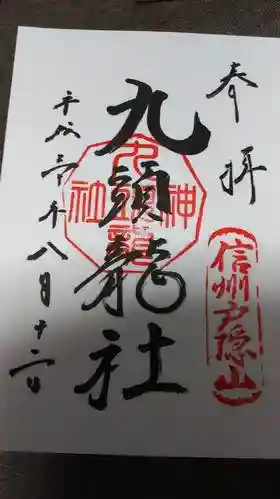 奉拝
信州戸隠山
九頭龍社
平成三十年八月十二日